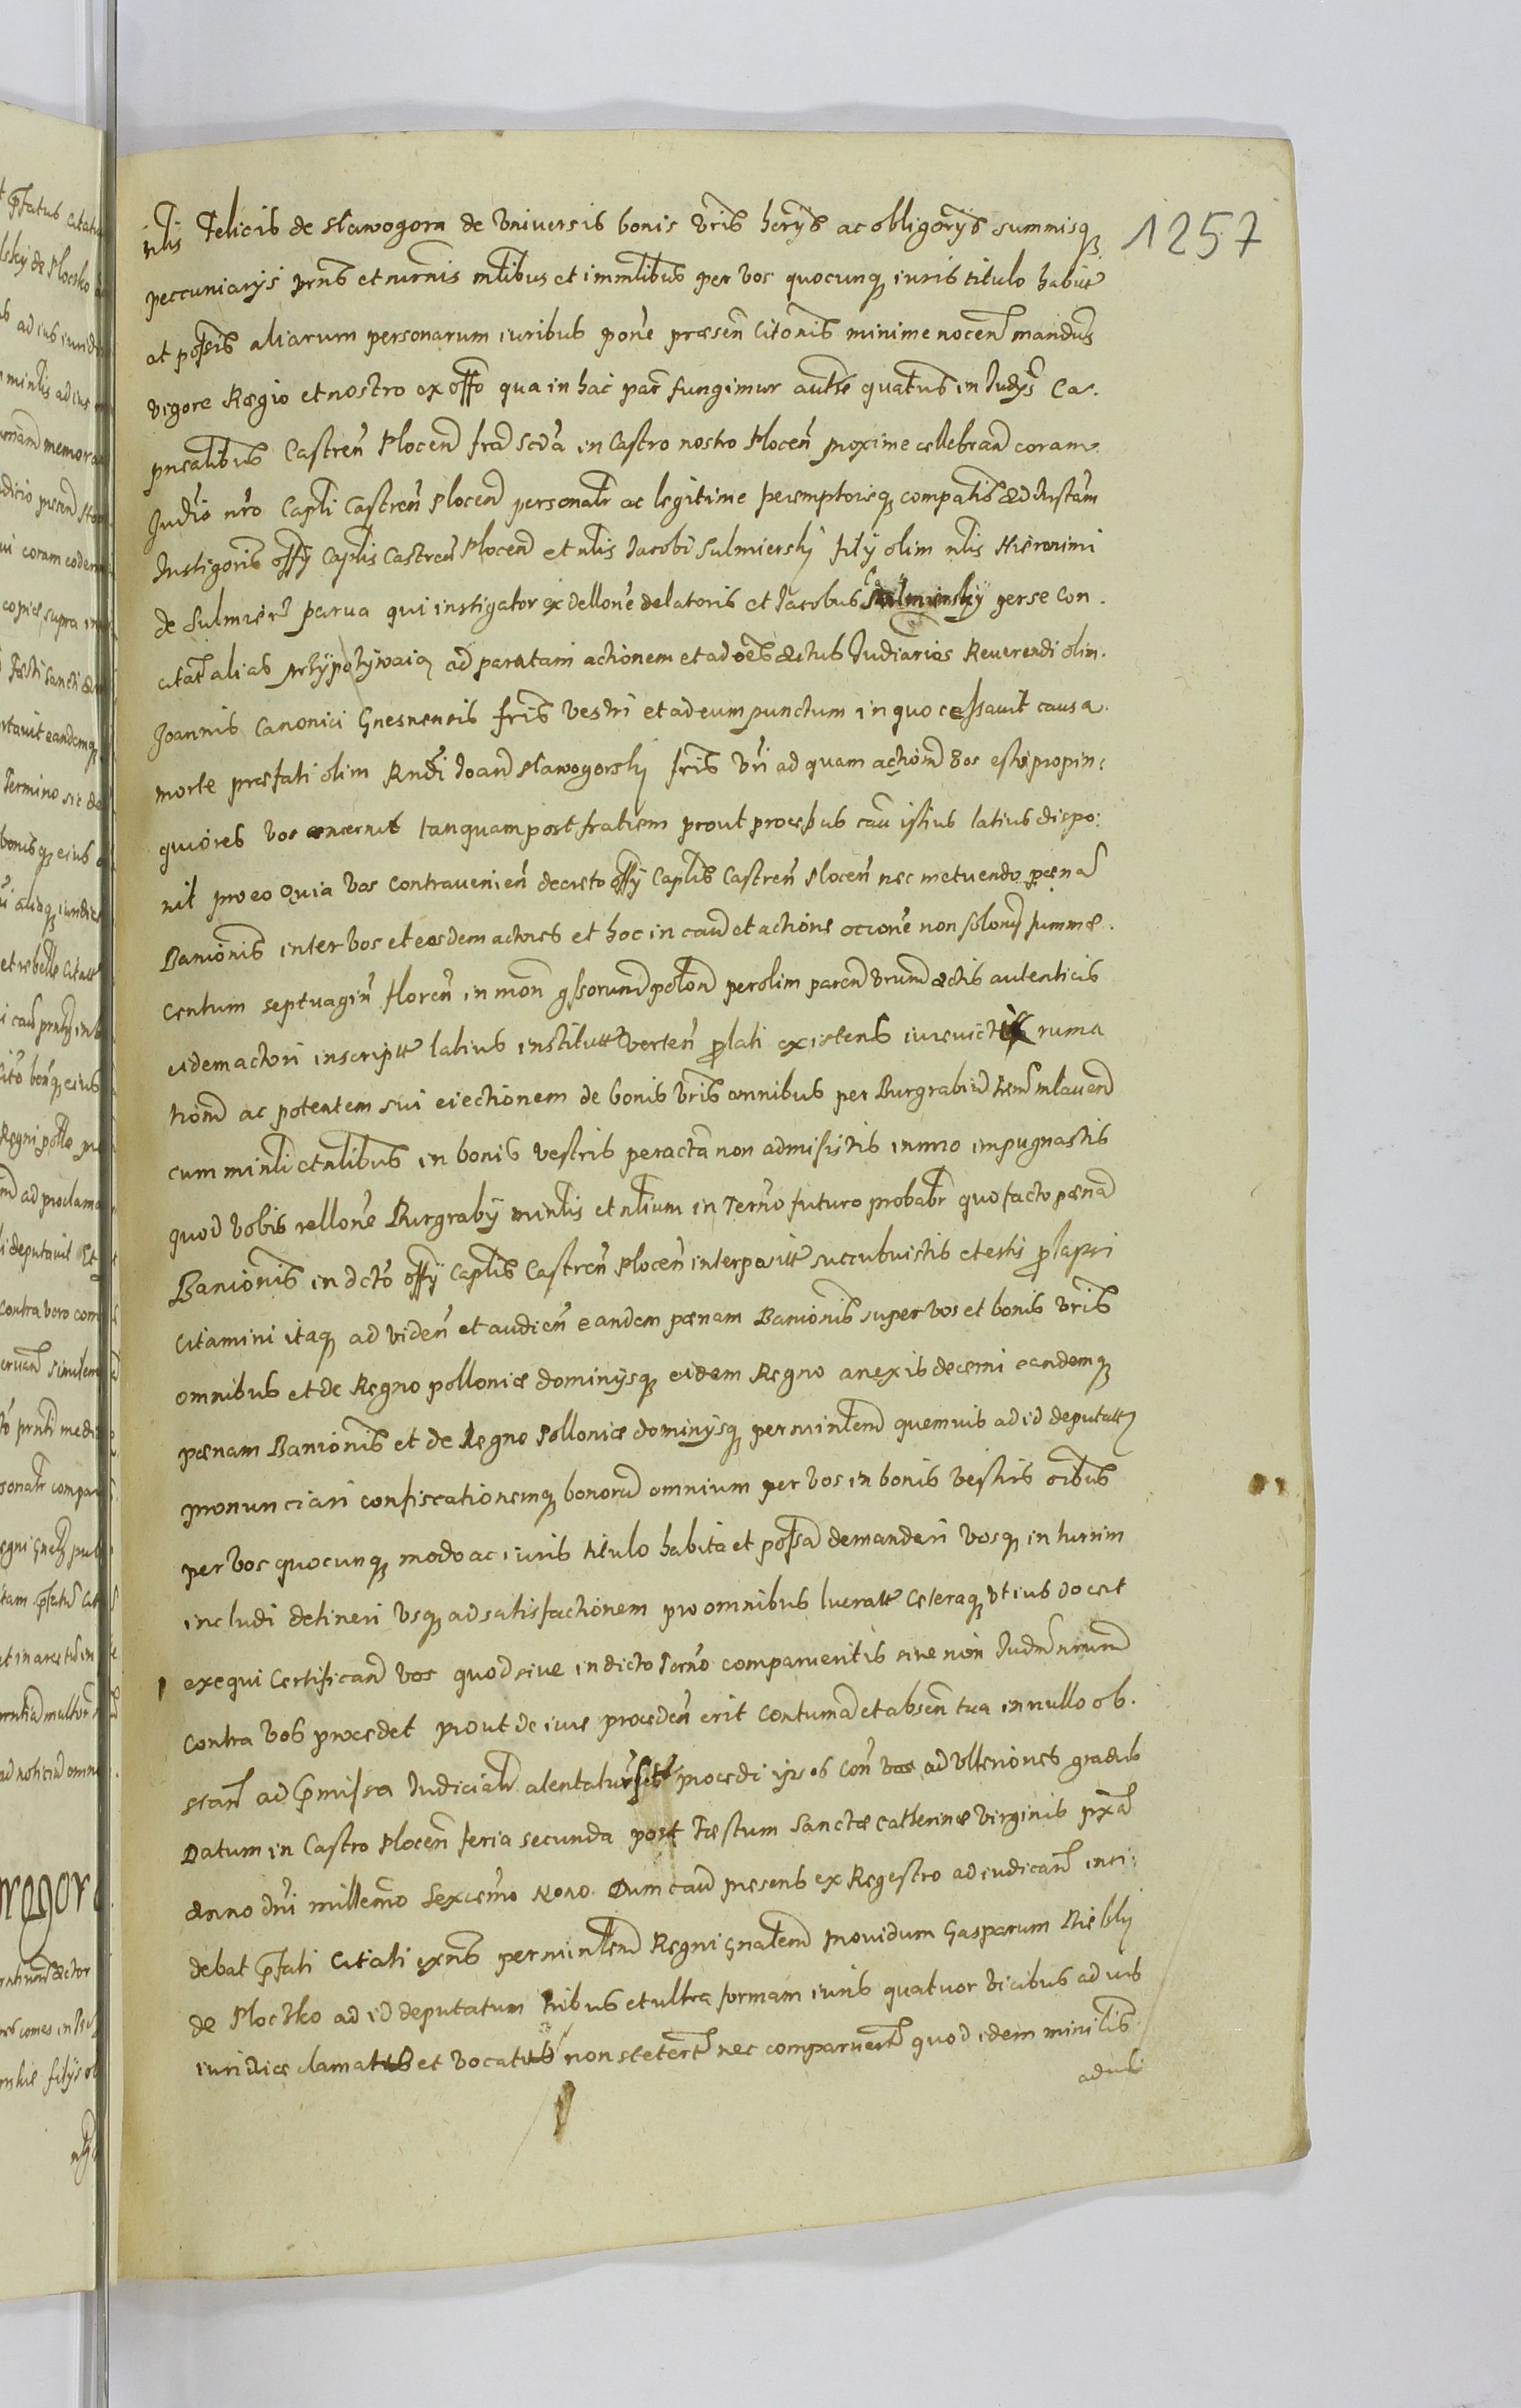 1257
nlis Felicis de Sławogora de Universis bonis vris herijs ac obligorijs summisq
peccuniarijs prns et rurnis mlibus et immlibus per vos quocunq iuris titulo habitt
at possis aliarum personarum iuribus pone præsen Citonis minime nocen mandus
vigore Regio et nostro ex offo qua in hac par fungimur autte quatus in Judys Ca.
pnealibus Castren Plocen fra Scda in Castro nostro Plocen proxime cellebran coram
Judio nro Capli Castren Plocen personalr ac legitime peremptorieq compatis ad Instam
Instigoris offy Caplis Castren Plocen et nlis Jacobi Sulmiersky fily olim nlis Hieronimi
de Sulmierz parva qui instigator ex dellone delatoris et Jacobus Sulmiersky perse con.
citat alias przypozywaią ad paratam actionem et ad oes actus Judiarios Reverendi olim.
Joannis Canonici Gnesnensis fris vestri et ad eum punctum in quo cessavit causa.
morte præfati olim Rndi Joan Sławogorsky fris vri ad quam action vos estis propin:
quiores vos concernit tanquam post fratrem prout processus cau istius latius dispo:
nit pro eo Quia vos contravenien decreto offy Caplis Castren Plocen nec metuendo pœnas
Banionis inter vos et eosdem actores et hoc in cau et actione ocione non solony summæ.
centum septuagin floren in mon gssorum polon per olim paren vrum actis autenticis
eidem actori inscriptt latius institutt verten prolati existens iurevicti ruma
tiom ac potentem sui eiectionem de bonis vris omnibus per Burgrabiu mlaven
cum minli et nlibus in bonis vestris peracta non admisistis immo impugnastis
quod vobis rellone Burgraby minlis et nlium in Terno futuro probabr quo facto pæna
Banionis in dcto offy Caplis Castren Plocen interpositt succubuistis et estis prolapsi
Citamini itaq ad viden et audien eandem pænam Banionis super vos et bonis vris
omnibus et de Regno polloniæ dominysq eidem Regno anexis decerni eandemq
pænam Banionis et de Regno Polloniæ dominysq per minlem quemvis ad id deputatt
pronunciari confiscationemq bonoru omnium per vos in bonis vestris oibus
per vos quocunq modo ac iuris titulo habita et possa demandari vosq in turrim
includi detineri usq ad satisfactionem pro omnibus lucratt Ceteraq ut ius docet
exequi Certifican vos quod sive in dicto Terno comparueritis sive non Judm nrum
contra vos procedet prout de iure proceden erit contuma et absen tua in nullo ob.
stan ad præmissa Judicialr attentatur procedi ipsos con vos ad ulteriores gradus
Datum in Castro Plocen feria secunda post Fæstum Sanctæ Catherinæ virginis pxa
Anno dni millemo Sexcemo Nono. Dum cau præsens ex Regestro ad iudicand inci:
debat præfati Citati exns per minlem Regni gnalem providum Gasparum Biebly
de Płoczko ad id deputatum tribus et ultra formam iuris quatuor vicibus ad ius
iuridice clamatus et vocatus non steterut nec comparuerut quod idem minilis
ad ius